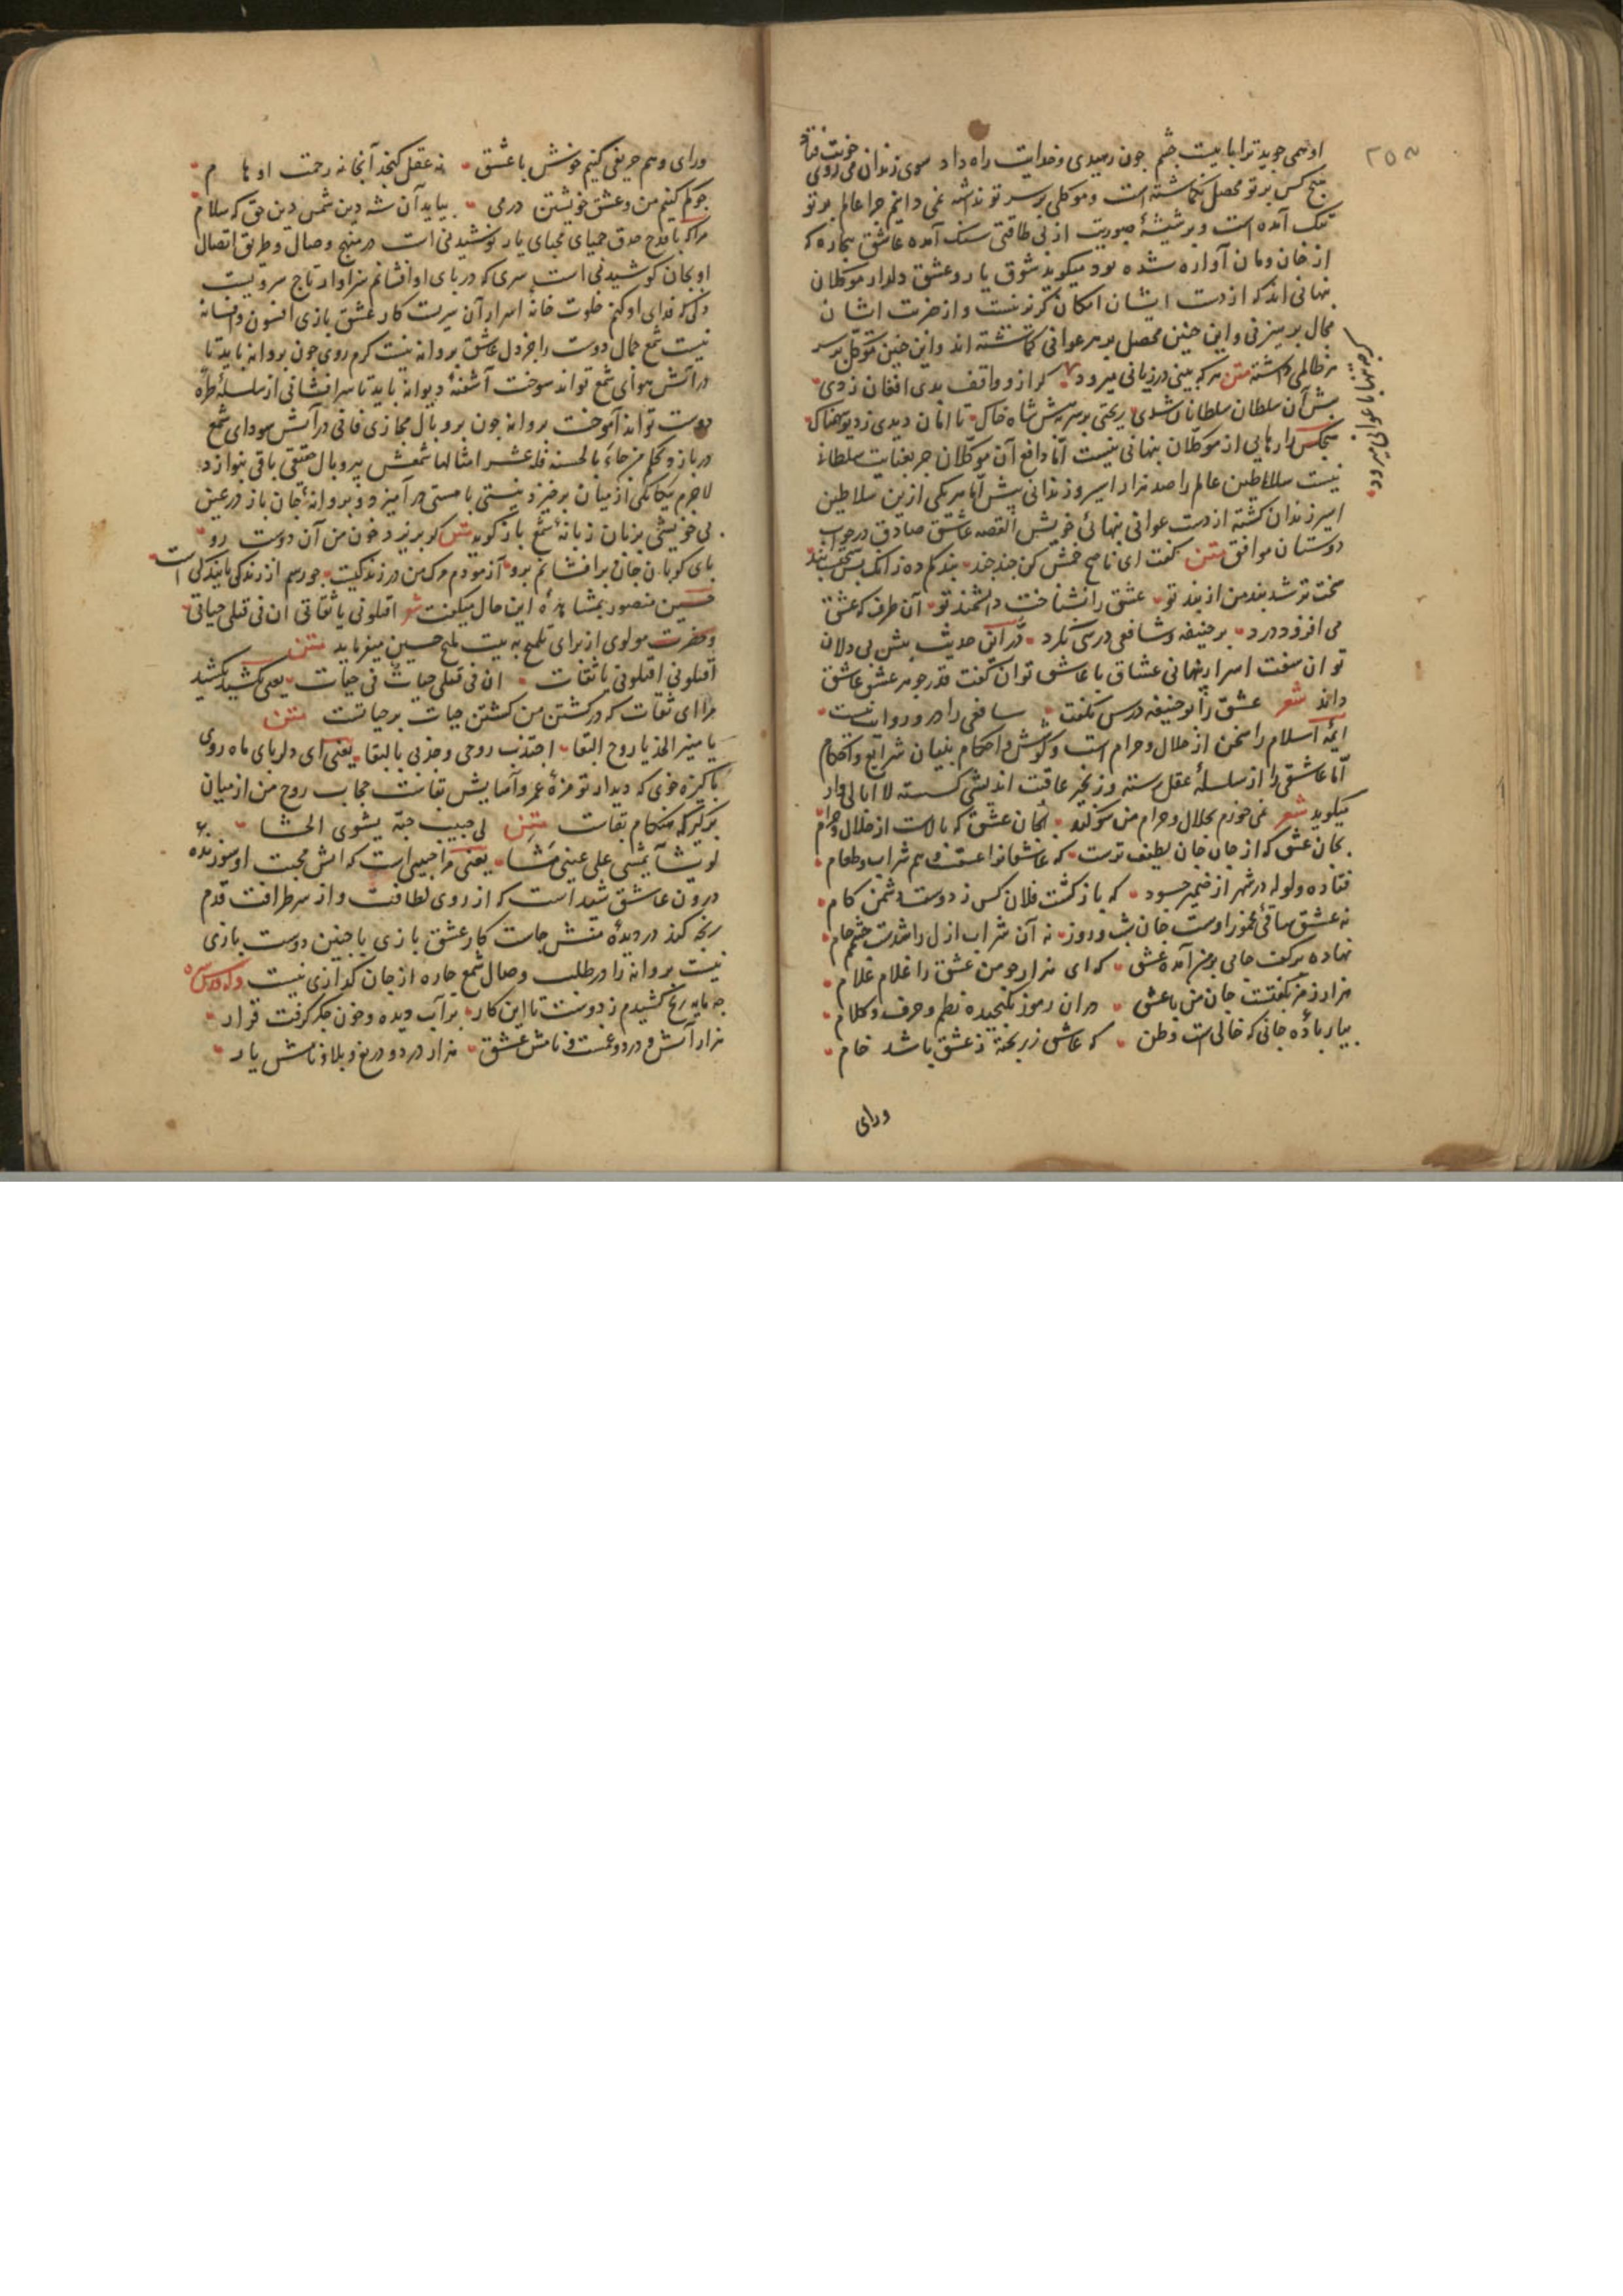 او همی جوید ترا با بیست چشم چون رسیدی و خدایت راه داد سوی زندان می روی خونت فتاد
هیچ کس بر تو محصل نکماشته است و موکلی بر سر تو نداشته نمی دانیم چرا عالم بر تو
تنک آمده است و بر شیشهٔ صبوریت از بی طاقتی سنک آمده عاشق بیچاره که
از خان و مان آواره شده بود میکوید شوق یار و عشق دلدار موکلان
پنهانی اند که از دست ایشان امکان کریز نیست و از حضرت ایشان
مجال پرهیز نی و این چنین محصل بر هر عوانی کماشته اند و این چنین موکل بر سر
هر ظالمی داشته متن هر که بینی در زیانی میرود کر ازو واقف بدی افغان زدی
پیش آن سلطان سلطانان شدی ریختی بر سر به پیش شاه خاک تا امان دیدی ز دیو سهمناک
هیچکس را رهایی از موکلان پنهانی نیست اما دافع آن موکلان جز بعنایت سلطان
نیست سلاطین عالم را صد هزار اسیر و زندانی پیش اما هر یکی ازین سلاطین
اسیر زندان کشته از دست عوانی پنهانی خویش القصه عاشق صادق در جواب
دوستان موافق متن کفت ای ناصح خمش کن چند چند پند کم ده زانک بس سختست بند
سخت تر شد بند من از پند تو عشق را نشناخت دانشمند تو آن طرف که عشق
می افزود درد بو حنیفه و شافعی درسی نکرد در این حدیث پیش بی دلان
توان سفت اسرار پنهانی عشاق با عاشق توان کفت قدر جوهر عشق عاشق
داند شعر عشق را بو حنیفه درس نکفت شافعی را درو روایت نیست
ایمهٔ اسلام را سخن از حلال و حرام است و کوشش در احکام بنیان شرایع و احکام
اما عاشقی را از سلسلهٔ عقل رسته و زنجیر عاقبت اندیشی کسسته لا ابالی وار
میکوید شعر نمی خورم بحلال و حرام من سوکند بجان عشق که بالاست از حلال و حرام
بجان عشق که از جان جان لطیف ترست که عاشقانرا عشقست هم شراب و طعام
فتاده ولوله در شهر از ضمیر حسود که بازکشت فلان کس ز دوست دشمن کام
نه عشق ساقی مخمور اوست جان شب و روز نه آن شراب ازل را شدست چشم جام
نهاده بر کف جامی برین آمده عشق که ای هزار چو من عشق را غلام غلام
هزار رمز بکفتست جان من با عشق در ان رموز نکنجیده نظم و حرف و کلام
بیار باده جانی که خالی است وطن که عاشق زر پخته ز عشق باشد خام
ورای
ورای وهم حریفی کنیم خوش با عشق نه عقل کنجد آنجا نه زحمت اوهام
چو کم کنیم من و عشق خویشتن در می بیاید آن شه دین شمس دین حق که سلام
مرا که با قدح صدق حمیای محیای یار نوشیدنی است در منهج وصال و طریق اتصال
او بجان کوشیدنی است سری که در پای او افشانم سزاوار تاج سرویست
دلی که فدای او کنم خلوت خانهٔ اسرار آن پریست کار عشق بازی افسون و افسانه
نیست شمع جمال دوست را جز دل عاشق پروانه نیست کرم روی چون پروانه باید تا
در آتش سودای شمع تواند سوخت آشفتهٔ دیوانه باید تا سرافشانی از سلسلهٔ طرهٔ
دوست تواند آموخت پروانه چون پر و بال مجازی فانی در آتش سودای شمع
در بازد بحکم من جاء بالحسنة فله عشر امثالها شمعش پر و بال حقیقی باقی بنوازد
لاجرم بیکانکی از میان برخیزد نیستی با هستی در آمیزد و پروانهٔ جان باز در عین
بی خویشی بزبان زبانهٔ شمع باز کوید متن کو بریزد خون من آن دوست رو
پای کوبان جان برافشانم برو آزمودم مرک من در زندکیست چو رهم از زندکی پایندکی است
حسین منصور بمشاهدهٔ این حال میکفت شعر اقتلونی یا ثقاتی ان فی قتلی حیاتی
و حضرت مولوی از برای تلمیح به بیت ملیح حسین میفرماید متن
اقتلونی اقتلونی یا ثقات ان فی قتلی حیات فی حیات یعنی بکشید بکشید
مرا ای ثقات که در کشتن من کشتن حیات بر حیاتست متن
یا منیر الخد یا روح البقا اجتذب روحی و جد لی باللقا یعنی ای دلربای ماه روی
پاکیزه خوی که دیدار تو مزهٔ عمر و آسایش بقاست حجاب روح من از میان
برکیر که هنکام بقاست متن لی حبیب حبه یشوی الحشا
لو یشا یمشی علی عینی مشا یعنی مرا حبیبی است که آتش محبت او سوزنده
درون عاشق شیداست که از روی لطافت و از سر ظرافت قدم
رنجه کند در دیدهٔ منش جاست کار عشق بازی با چنین دوست بازی
نیست پروانه را در طلب وصال شمع چاره از جان کدازی نیست
چه مایه رنج کشیدم ز دوست تا این کار بر آب دیده و خون جکر کرفت قرار
هزار آتش و درد و غمست و نامش عشق هزار درد و دریغ و بلا و نامش یار